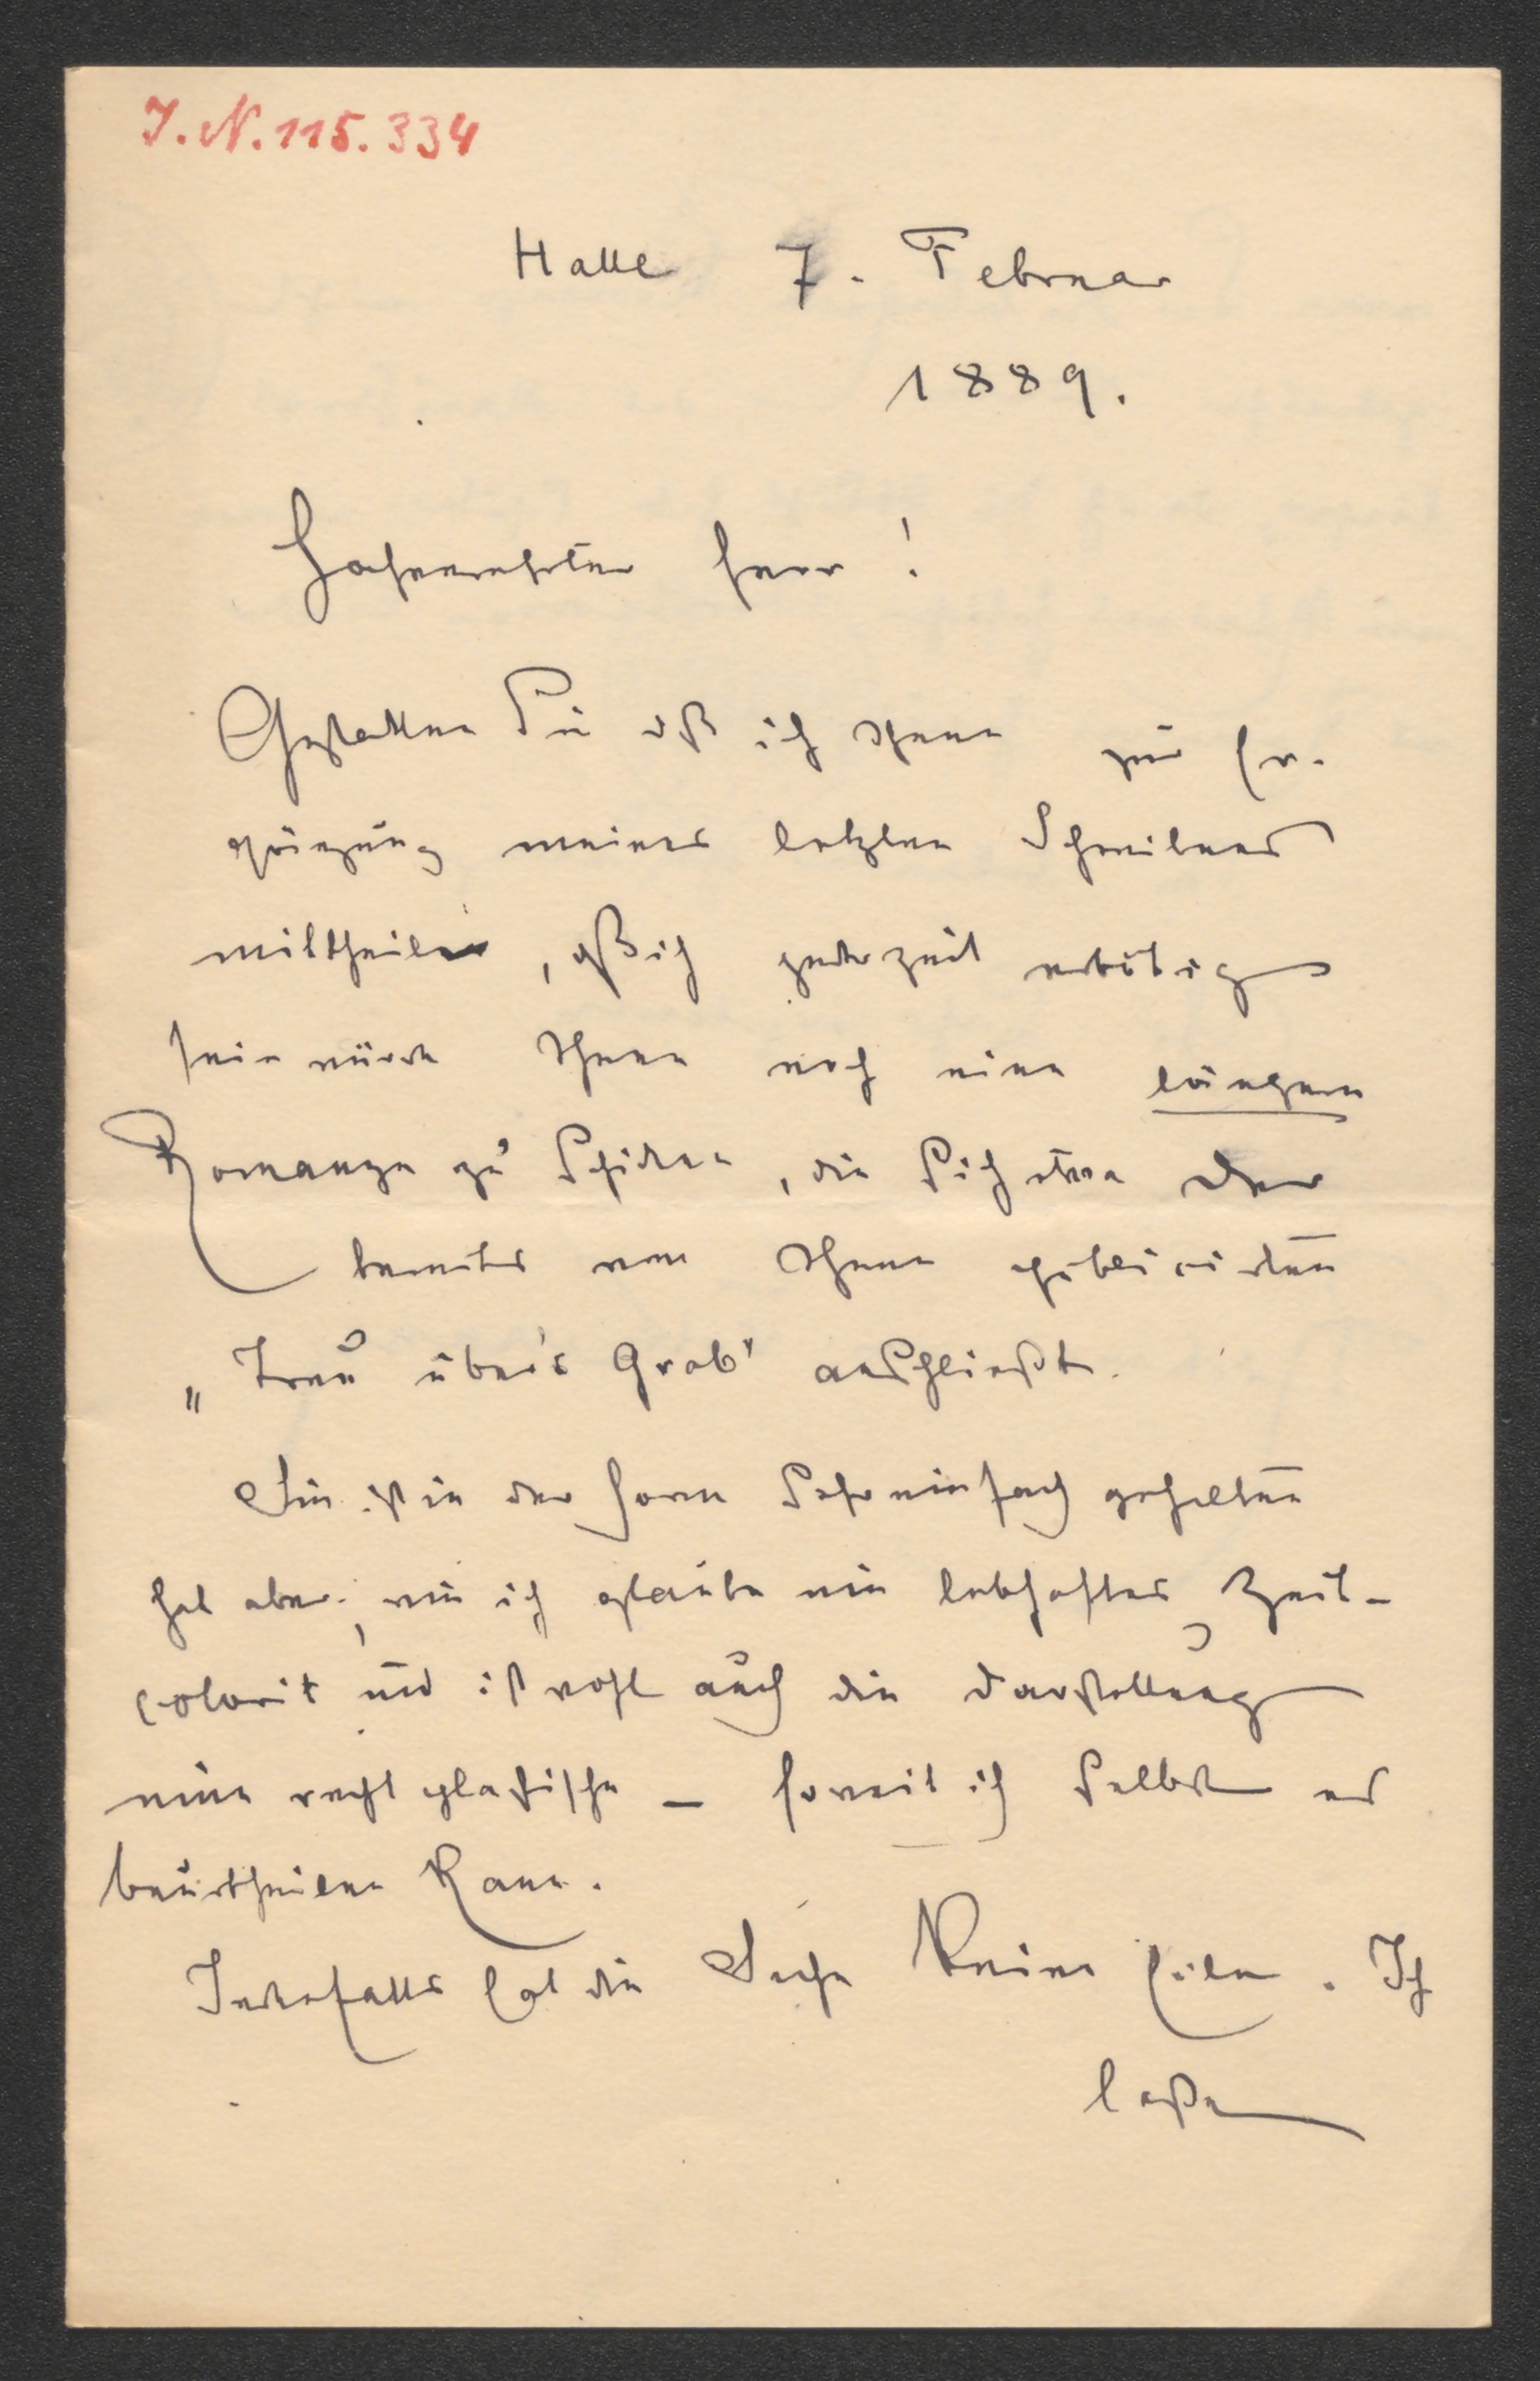 J. N. 115.334
Halle 7. Februar
1889.
Hochverehrter Herr!
Gestatten Sie daß ich Ihnen zur Er-
gänzung meines letzten Schreibens
mittheile, daß ich jederzeit erbötig
sein würde Ihnen noch eine längere
Romanze zu schicken, die sich etwa der
bereits von Ihnen publicirten
„Treu über's Grab" anschließt.
Sie ist in der Form sehr einfach gehalten
hat aber, wie ich glaube ein lebhaftes Zeit-
colorit und ist wohl auch die Darstellung
eine recht plastische – soweit ich selbst es
beurtheilen kann.
Jedenfalls hat die Sache keine Eile. Ich
laße